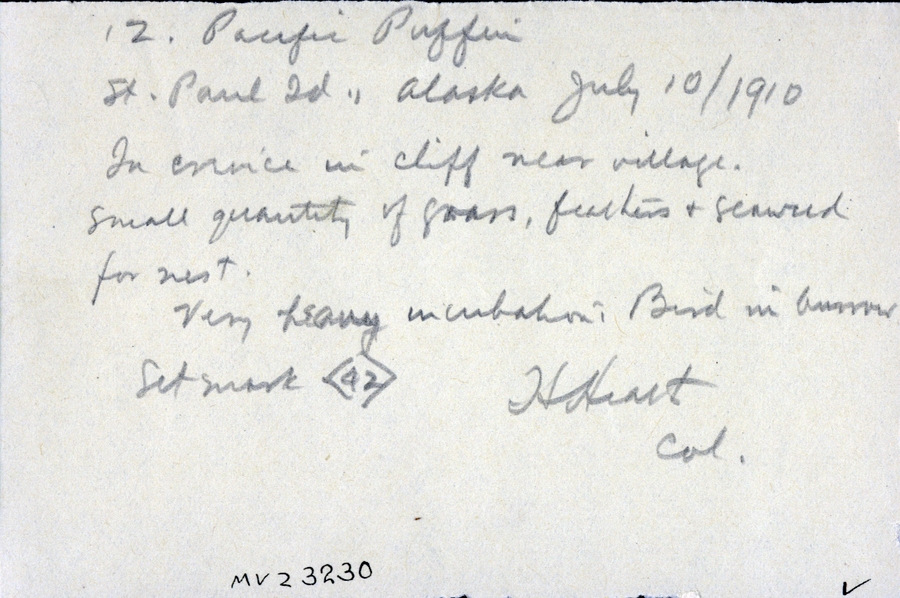 12. Pacific Puffin
St. Paul Id., Alaska July 10/1910
In crevice in cliff near village.
Small quantity of grass, feathers + seaweed
for nest.
Very heavy incubation. Bird in burrow
Set mark <92>
Col.
MVZ 3230
✓